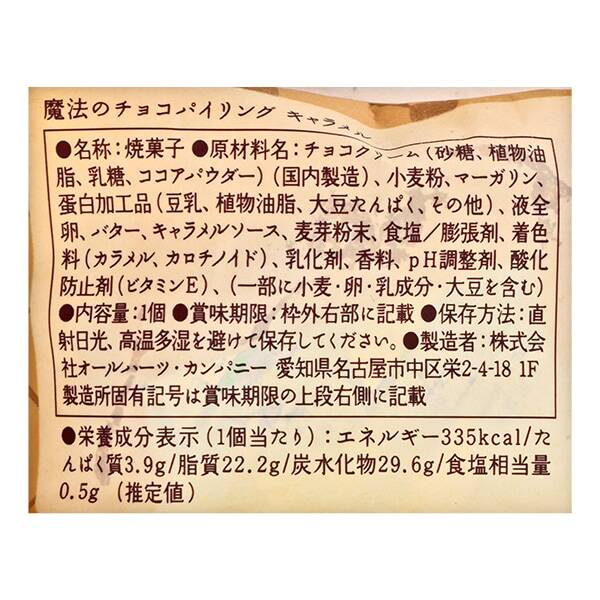 魔法のチョコパイリング キャラメル
●名称:焼菓子 ●原材料名:チョコクリーム(砂糖、植物油
脂、乳糖、ココアパウダー)(国内製造)、小麦粉、マーガリン、
蛋白加工品(豆乳、植物油脂、大豆たんぱく、その他)、液全
卵、バター、キャラメルソース、麦芽粉末、食塩/膨張剤、着色
料(カラメル、カロチノイド)、乳化剤、香料、pH調整剤、酸化
防止剤(ビタミンE)、(一部に小麦・卵・乳成分・大豆を含む)
●内容量:1個 ●賞味期限:枠外右部に記載 ●保存方法:直
射日光、高温多湿を避けて保存してください。●製造者:株式会
社オールハーツ・カンパニー 愛知県名古屋市中区栄2-4-18 1F
製造所固有記号は賞味期限の上段右側に記載
●栄養成分表示(1個当たり):エネルギー335kcal/た
んぱく質3.9g/脂質22.2g/炭水化物29.6g/食塩相当量
0.5g (推定値)